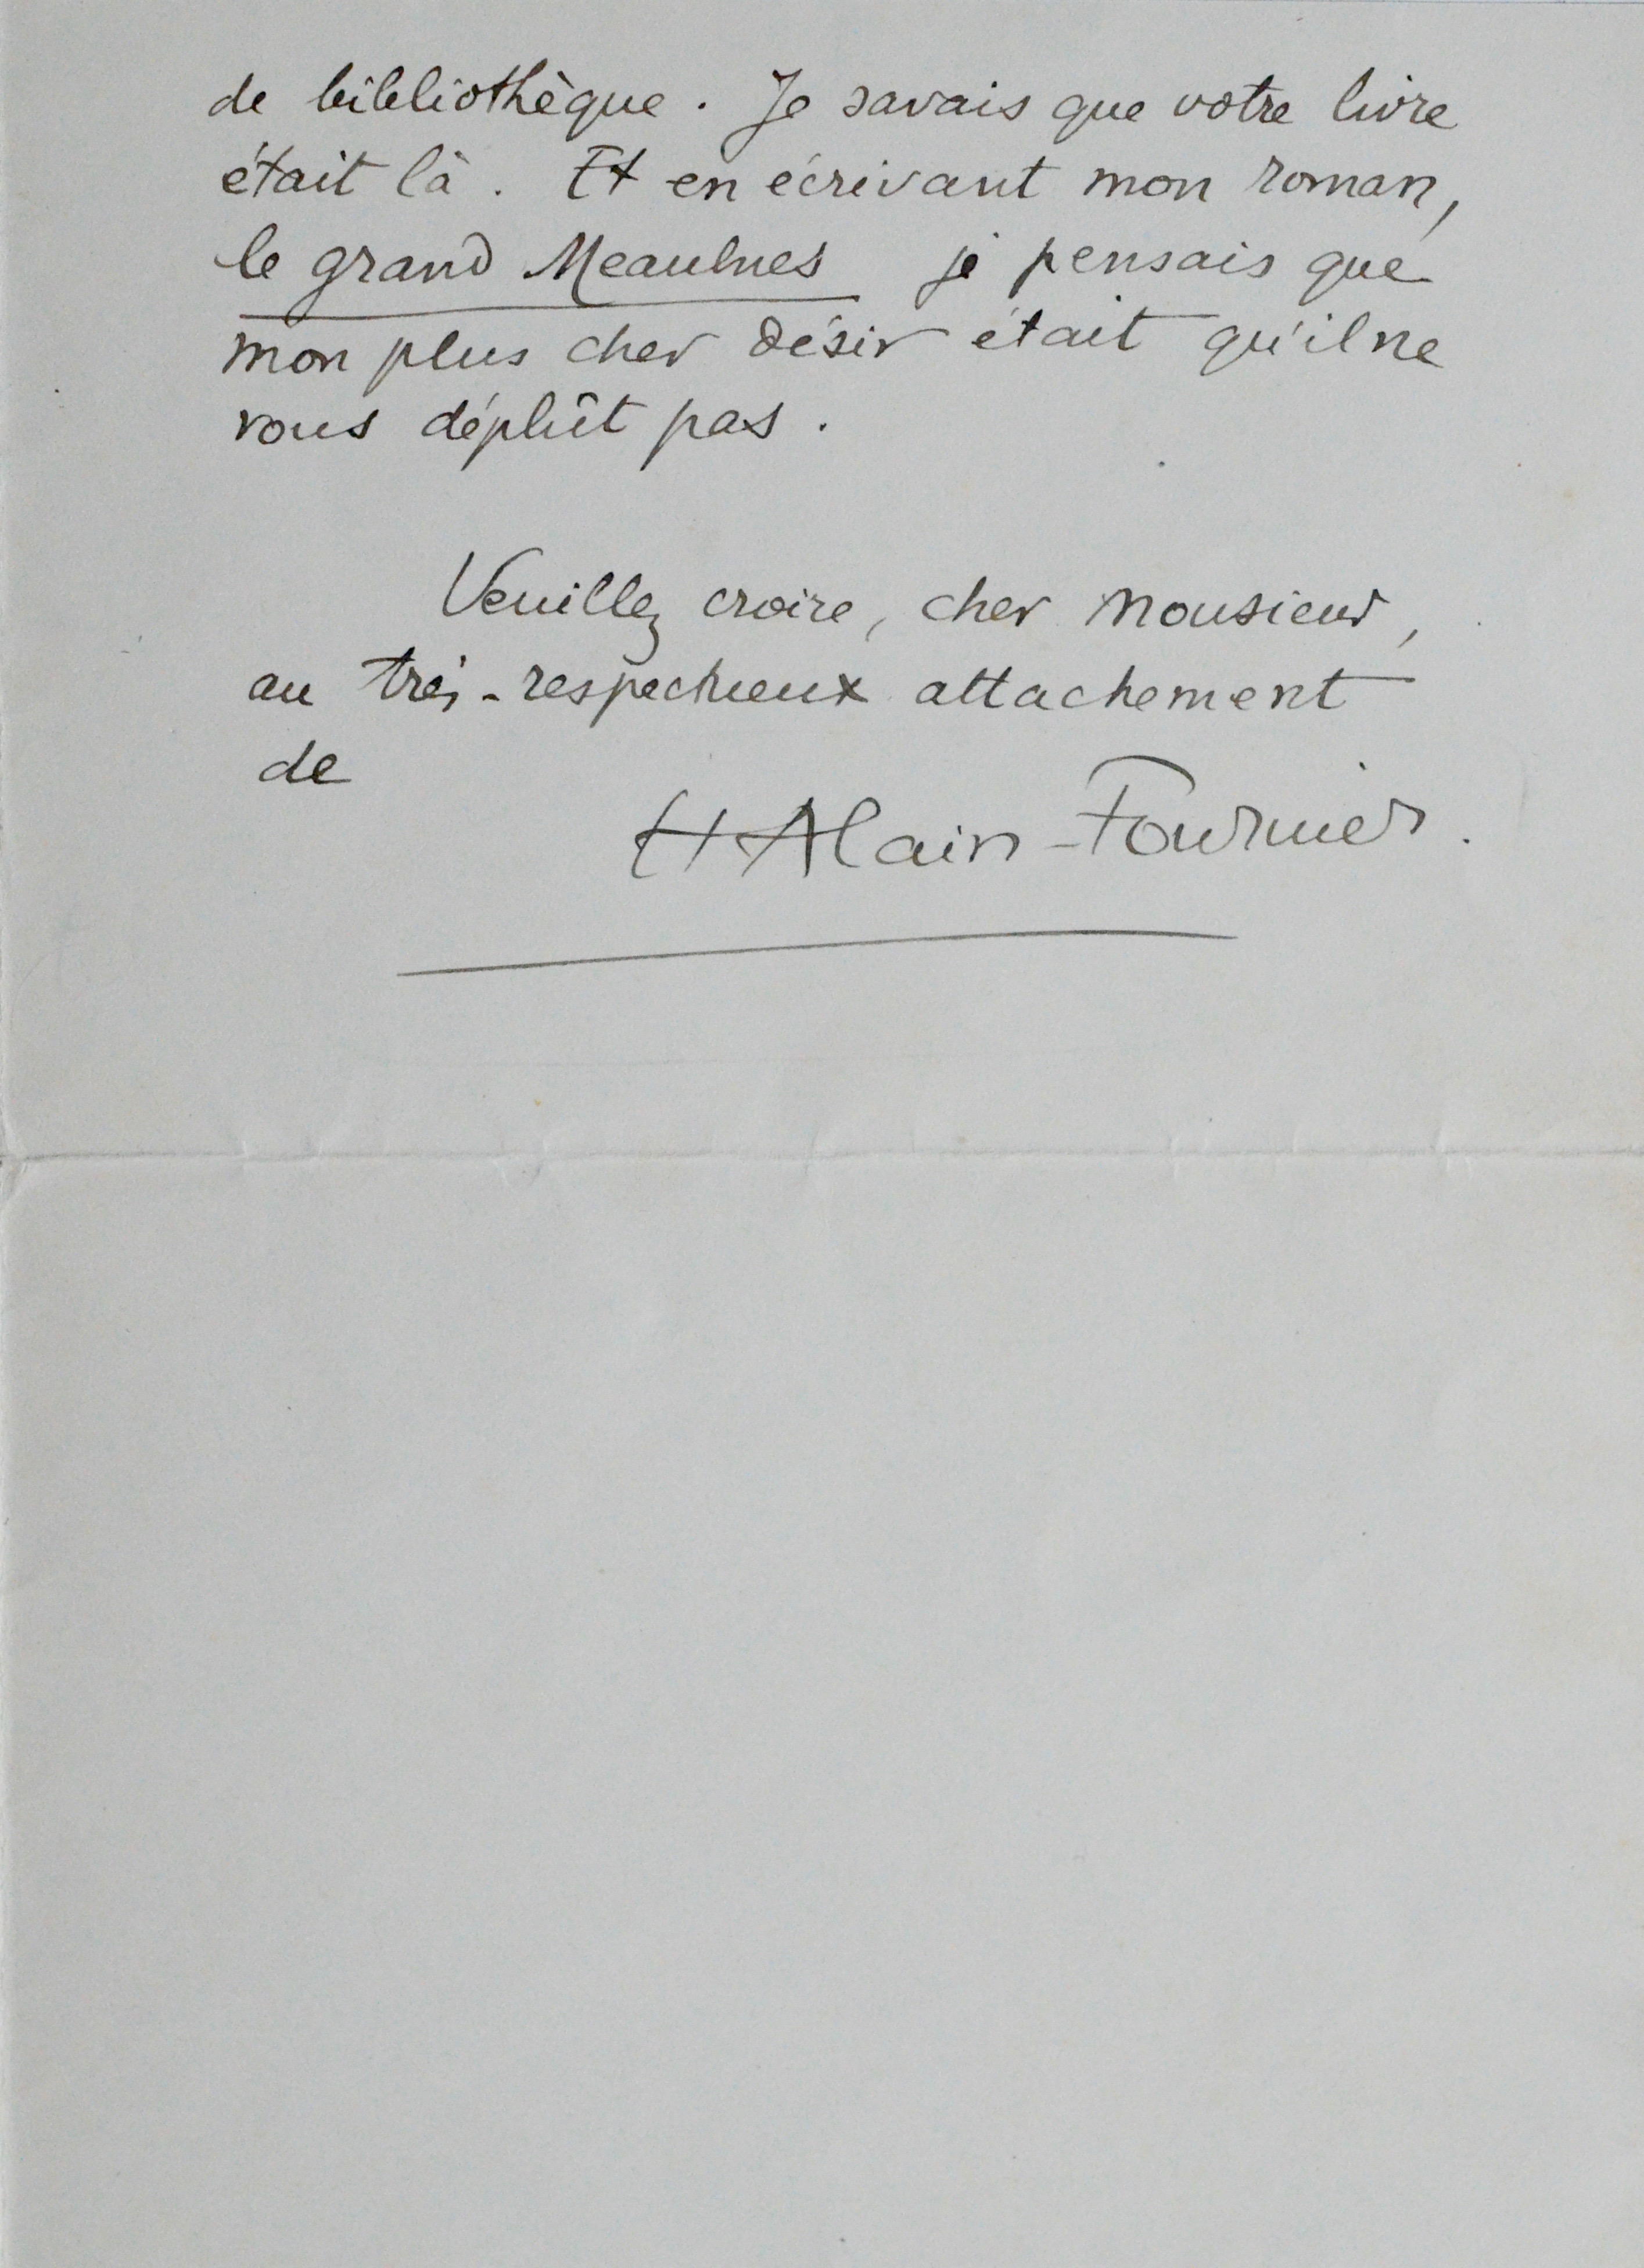 de bibliothèque. Je savais que votre livre
était là. Et en écrivant mon roman,
le grand Meaulnes je pensais que
mon plus cher désir était qu'il ne
vous déplût pas.
Veuillez croire, cher Monsieur,
au très-respectueux attachement
de
H Alain-Fournier.